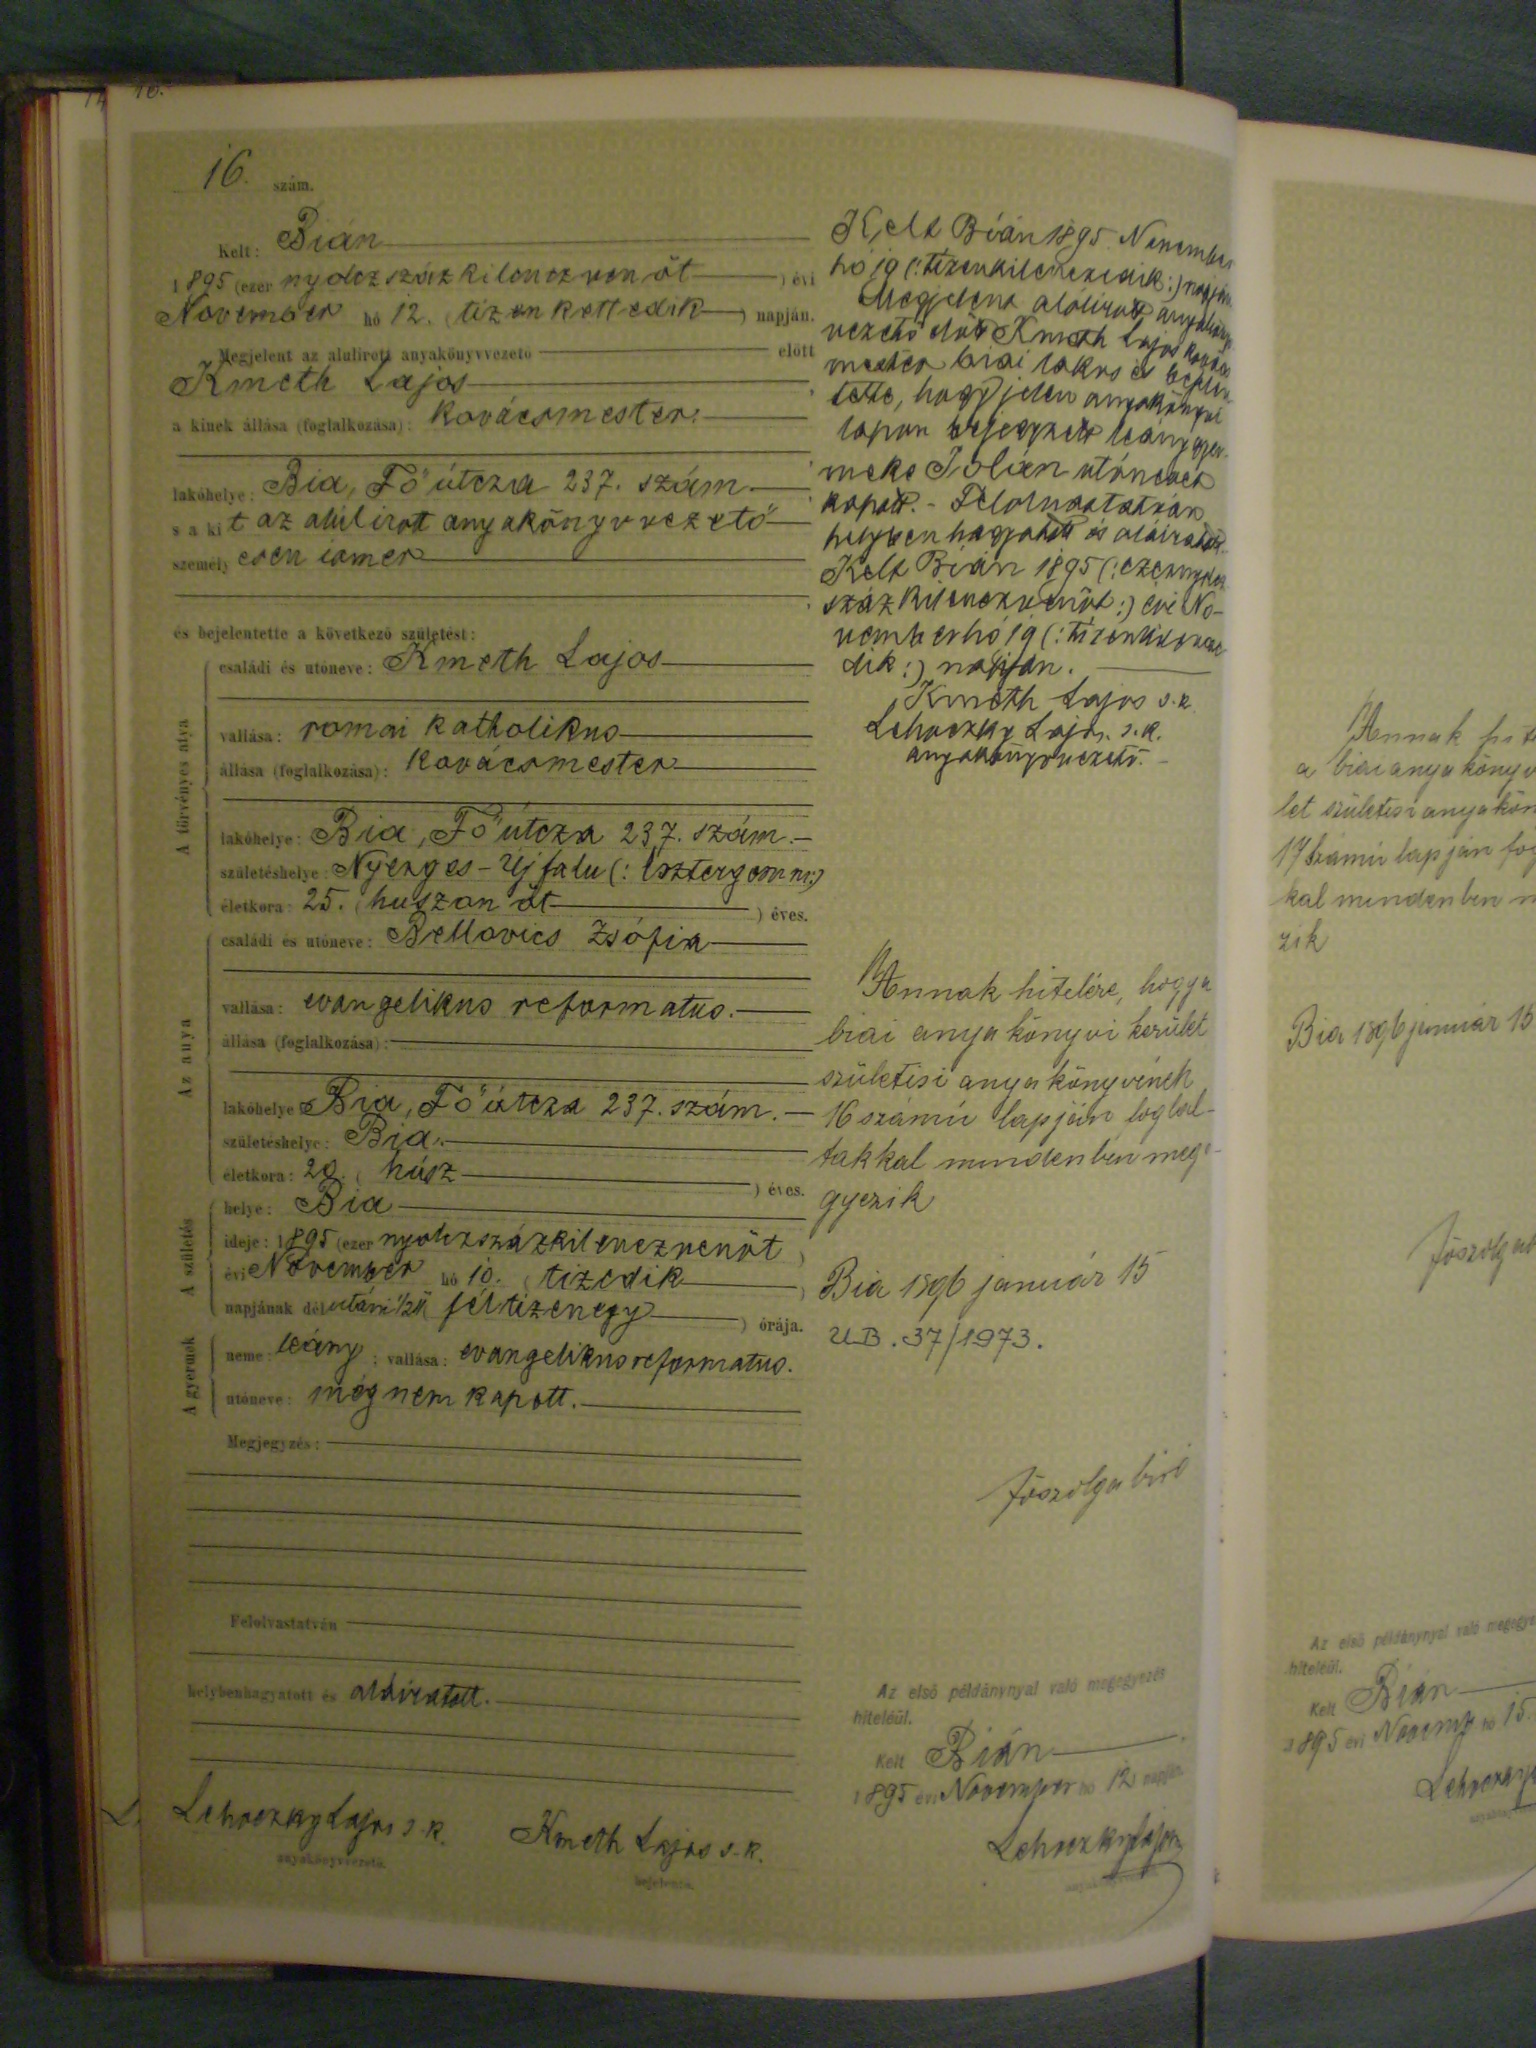 16.
16. szám.
Kelt: Bián
1895 (ezer nyolczszázkilenczvenöt ) évi
November hó 12. (tizenkettedik ) napján.
Megjelent az alulirott anyakönyvvezető előtt
Kmeth Lajos
a kinek állása (foglalkozása): kovácsmester.
lakóhelye: Bia, Fő útcza 237. szám.
s a kit az alúlírott anyakönyvvezető
személyesen ismer
és bejelentette a következő születést:
A törvényes atya
családi és utóneve: Kmeth Lajos
vallása: romai katholikus
állása (foglalkozása): kovácsmester
lakóhelye: Bia, Fő útcza 237. szám.
születéshelye: Nyerges-Újfalu (: Esztergom m:)
életkora: 25. (huszonöt ) éves.
Az anya
családi és utóneve: Bellovics Zsófia
vallása: evangelikus reformatus.
állása (foglalkozása):
lakóhelye Bia, Fő útcza 237. szám.
születéshelye: Bia.
életkora: 20. (húsz ) éves.
A születés
helye: Bia
ideje: 1895 (ezer nyolczszázkilenczvenöt )
évi November hó 10. (tizedik )
napjának délutáni ½11 (féltizenegy ) órája.
A gyermek
neme: leány; vallása: evangelikus reformatus.
utóneve: még nem kapott.
Megjegyzés:
Felolvastatván
helybenhagyatott és aláíratott.
Lehoczky Lajos s.k.
anyakönyvvezető.
Kmeth Lajos s.k.
bejelentő.
Kelt Bián 1895. November
hó 19 (: tizenkilenczedik:) napján
Megjelent alólírott anyakönyv-
vezető előtt Kmeth Lajos kovács
mester biai lakos és bejelen
tette, hogy jelen anyakönyvi
lapon bejegyzett leánygyer-
meke Jolán utónevet
kapott. - Felolvastatván
helybenhagyatott és aláíratott.
Kelt Bián 1895 (: ezernyolcz
százkilenczvenöt:) évi No-
vember hó 19 (: tizenkilencze
dik:) napján.
Kmeth Lajos s.k.
Lehoczky Lajos s.k.
anyakönyvvezető.
Annak hitelére, hogy a
biai anyakönyvi kerület
születési anyakönyvének
16 számú lapján foglal-
takkal mindenben mege-
gyezik
Bia 1896 január 15
U.B. 37/1973.
főszolgabiró
Az első példánynyal való megegyezés
hiteléül.
Kelt Bián
1895 évi November hó 12 napján.
Lehoczky Lajos
anyakönyvvezető.
Annak hite
a biai anyakönyv
let születési anyakön
17 számú lapján fog
kal mindenben m
zik
Bia 1896 január 15
főszolgab
Az első példánynyal való megegye
hiteléül.
Kelt Bián
1895 évi Novemb hó 15.
Lehoczky